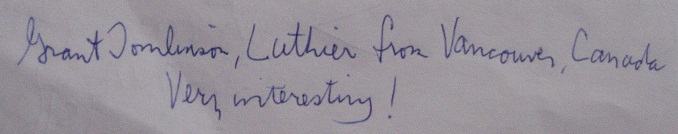 Grant Tomlinson, Luthier from Vancouver, Canada
Very interesting!